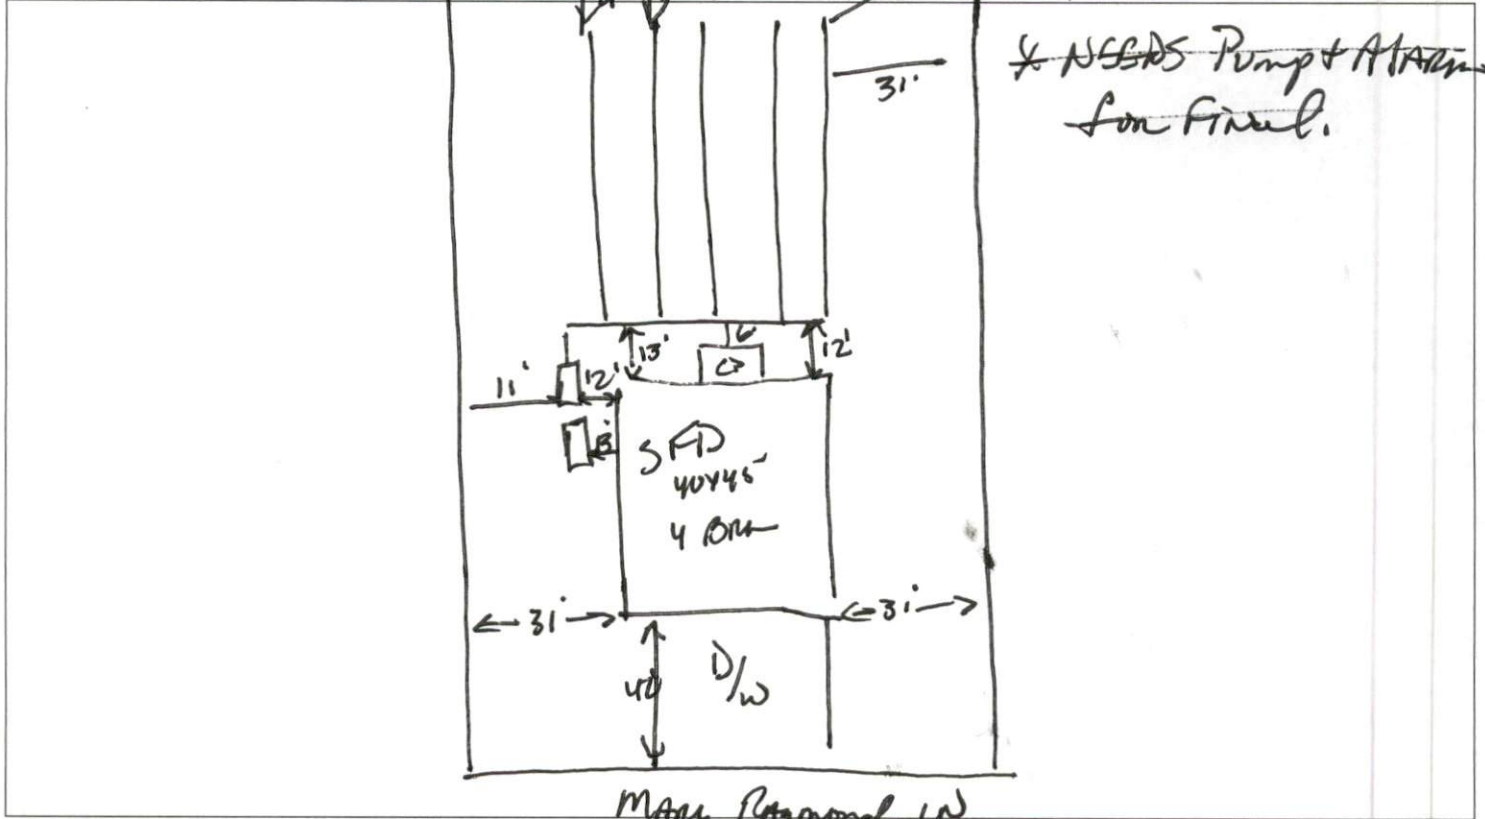 * NEEDS Pump & Alarm
for Final.
31'
13'
6'
12'
11'
12'
SFD
40x45
4 BRM
31'
31'
40'
D/W
LN